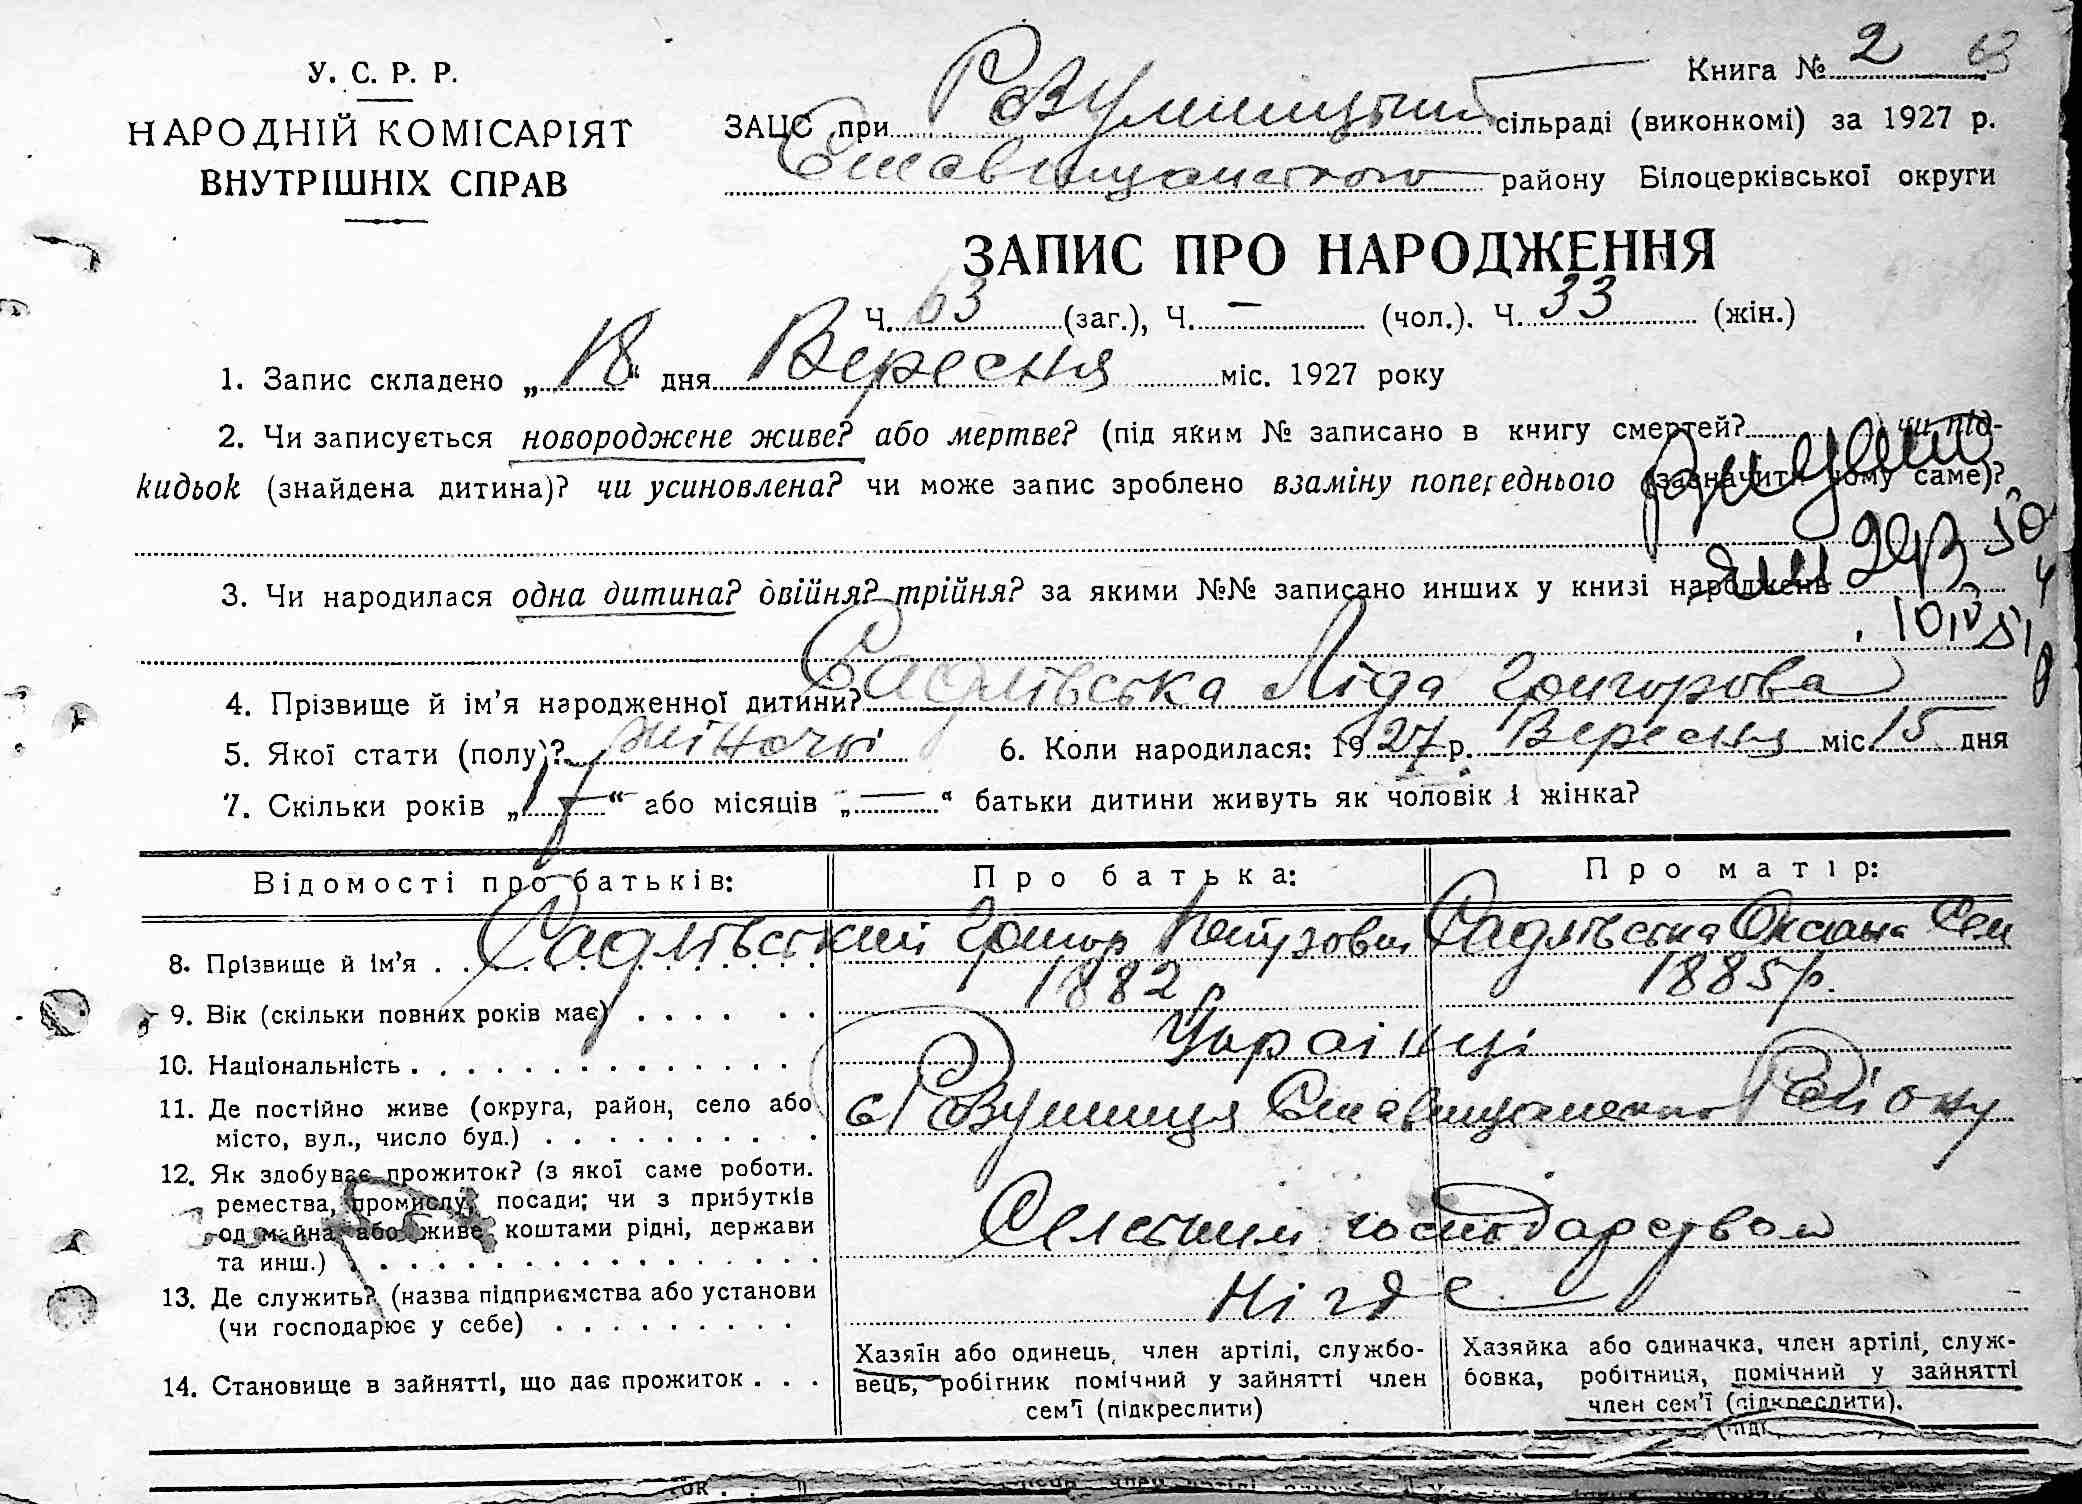 У. С. Р. Р.
НАРОДНІЙ КОМІСАРІЯТ
ВНУТРІШНІХ СПРАВ
Книга № 2 63
ЗАЦС при Розумницькій сільраді (виконкомі) за 1927 р.
Ставищанського району Білоцерківської округи
ЗАПИС ПРО НАРОДЖЕННЯ
Ч. 63 (заг.), Ч. — (чол.). Ч. 33 (жін.)
1. Запис складено „18“ дня Вересня міс. 1927 року
2. Чи записується новороджене живе? або мертве? (під яким № записано в книгу смертей? ) чи під-
кидьок (знайдена дитина)? чи усиновлена? чи може запис зроблено взаміну попереднього (зазначити чому саме)?
3. Чи народилася одна дитина? двійня? трійня? за якими №№ записано инших у книзі народжень
10 IV 51
4. Прізвище й ім’я народженної дитини? Садлівська Ліда Григорова
5. Якої стати (полу)? жіночьі 6. Коли народилася: 1927 р. Вересня міс. 15 дня
7. Скільки років „17“ або місяців „—“ батьки дитини живуть як чоловік і жінка?
Відомості про батьків: Про батька: Про матір:
8. Прізвище й ім’я . . . Садлівський Григор Садлівська Оксана Сем
9. Вік (скільки повних років має) . . . . . . 1882 р 1885 р.
10. Національність . . . . . . . . . . . . . . Українці
11. Де постійно живе (округа, район, село або
місто, вул., число буд.) . . . . . . . . . . с Розумниця Ставищанського Району
12. Як здобуває прожиток? (з якої саме роботи.
ремества, промислу, посади; чи з прибутків
од майна або живе коштами рідні, держави
та инш.) . . . . . . . . . . . . . . . . . Сельским господарством
13. Де служить? (назва підприємства або установи
(чи господарює у себе) . . . . . . . . . Нігде
14. Становище в зайнятті, що дає прожиток . . .
Хазяїн або одинець, член артілі, службо-
вець, робітник помічний у зайнятті член
сем’ї (підкреслити)
Хазяйка або одиначка, член артілі, служ-
бовка, робітниця, помічний у зайнятті
член сем’ї (підкреслити).